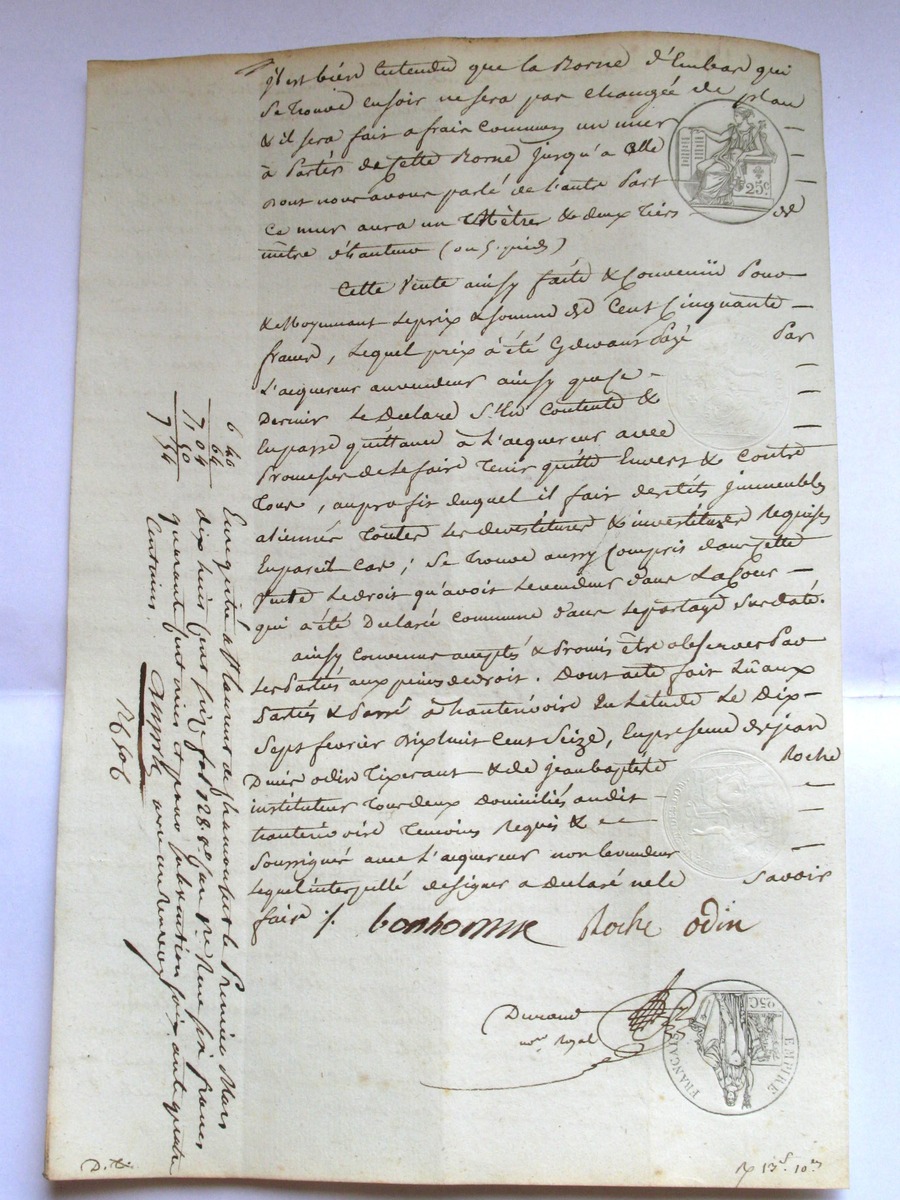 il est bien Entendu que la Borne d'Embas qui
se trouve en soir ne sera pas changée de plan
& il sera fait a frais Communs un mur
à Partir de Cette Borne jusqu'a Celle
dont nous avons parlé de l'autre Part
Ce mur aura un Mètre & deux tiers de
mètre d'hauteur (ou 5. pieds)
Cette Vente ainsy faite & Convenüe Pour
& Moyennant le prix & somme de Cent Cinquante
francs, lequel prix à été Payé Par
L'acquereur au vendeur ainsy que ce
Dernier Le Declare S'En Contente &
En passe quittance à L'acquereur avec
Promesse de Le faire Tenir quitte Envers & Contre
Tous, au profit duquel il fait des dits immeubles
aliennés Toutes Les devestitures & investitures Requises
En pareil Cas; Se Trouve aussy Compris dans Cette
Vente Le droit qu'avoit Le vendeur dans La Cour
qui a été Declarée Commune dans Le partage Sus daté.
ainsy Convenu accepté & Promis être observer Par
Les Parties aux peines de droit. Dont acte fait Lû aux
Parties & Passé à hauterivoire En L'étude Le Dix-
Sept fevrier Dix huit Cent Seize, En presence de jean
Odin Tixerant & de jean baptiste Roche
instituteur Tous deux Domiciliés audit
hauterivoire Temoins Requis &
Soussigné avec L'acquereur non Le vendeur
Lequel interpellé de signer a Declaré ne le Savoir
faire /.
bonhomme Roche odin
Durand
nore Royal
25c.
25C.
EMPIRE
FRANÇAIS
6 40
64
7,04
50
7,54
Enregistré à St Laurent de Chamousset le Premier Mars
dix huit Cent seize fol 128. Reçu six francs
quarante centimes et pour subvention soixante quatre
Centimes.
avec un Renvoy
D. t.
13s. 10